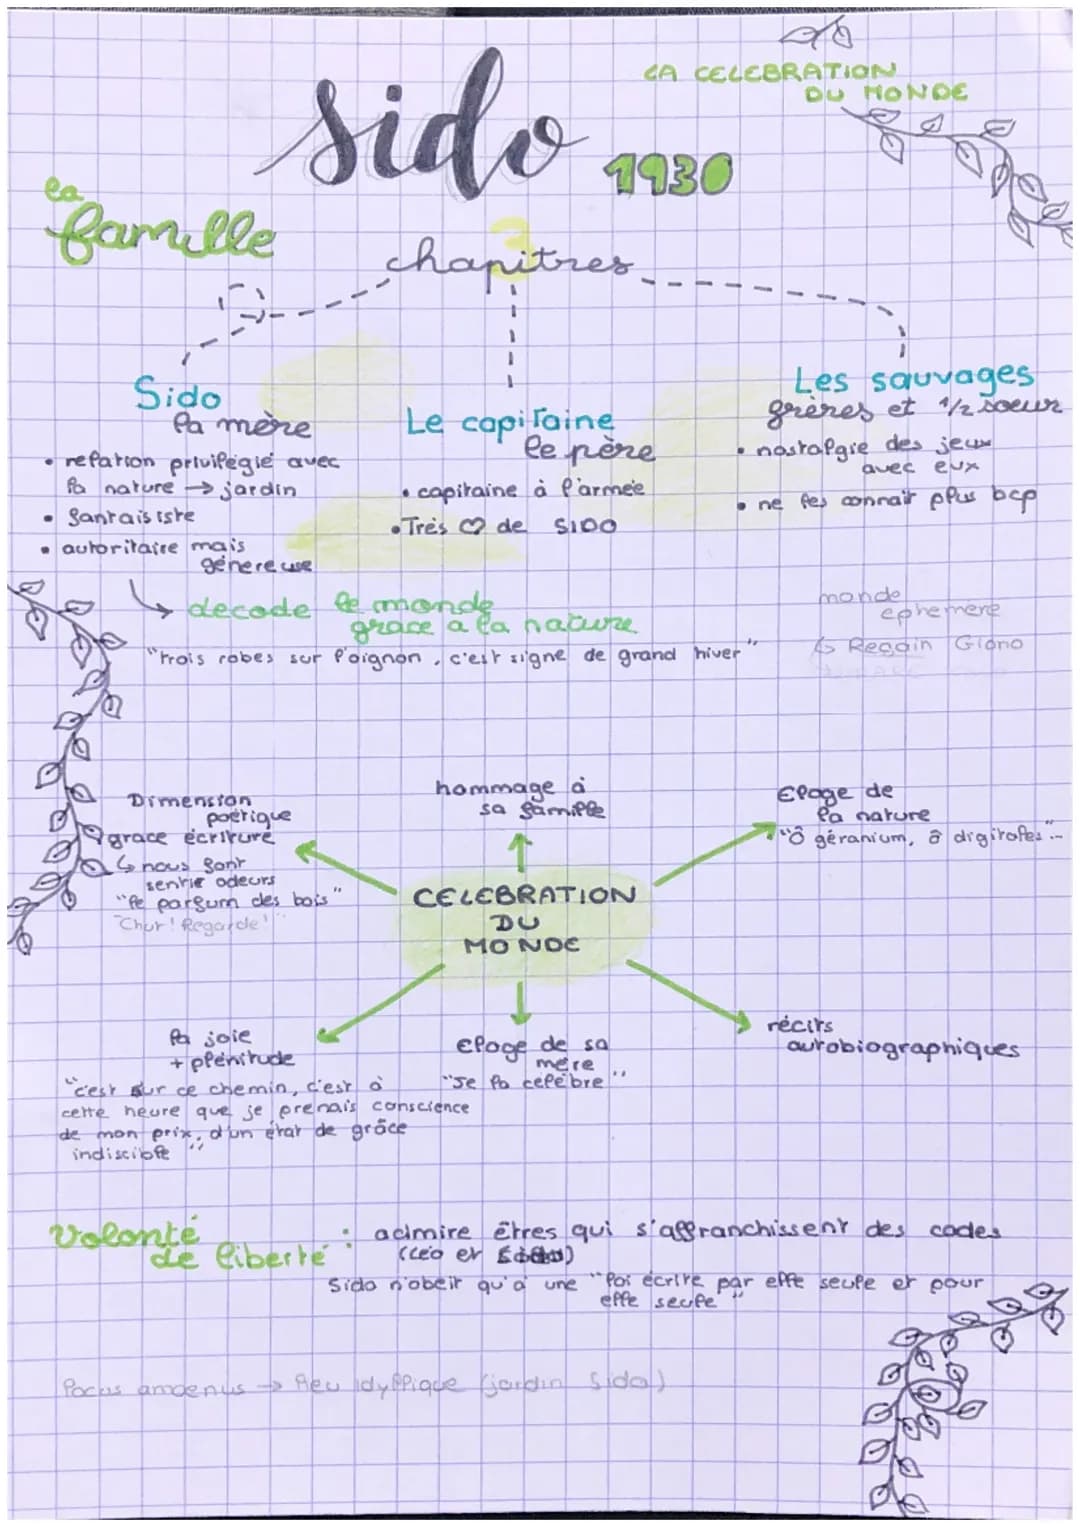 LA CELEBRATION
DU MONDE
sido
1930
la
famille
3
chapitres
Sido
la mère
• relation privilégié avec
la nature → jardin
• fantaisiste
• autoritaire mais
génereuse
Le capitaine
le père
• capitaine à l'armée
• Très ♡ de SIDO
Les sauvages
frères et 1/2 soeur
• nostalgie des jeux
avec eux
• ne les connait plus bcp
↳ decode le monde
grace a la nature
"Trois robes sur l'oignon, c'est signe de grand hiver"
monde
ephemère
↳ Regain Giono
Dimension
poétique
grace écriture
↳ nous font
sentir odeurs
"le parfum des bois"
"Chut! Regarde!"
hommage à
sa famille
Eloge de
la nature
"Ô géranium, ô digitales"...
CELEBRATION
DU
MONDE
la joie
+ plénitude
"c'est sur ce chemin, c'est à
cette heure que je prenais conscience
de mon prix, d'un état de grâce
indiscible"
Eloge de sa
mère
"Je la célèbre"
récits
autobiographiques
Volonté
de liberté :
admire êtres qui s'affranchissent des codes
(Léo et Sido)
Sido n'obeit qu'à une "loi écrite par elle seule et pour
elle seule"
locus amoenus → lieu idyllique (jardin Sido)